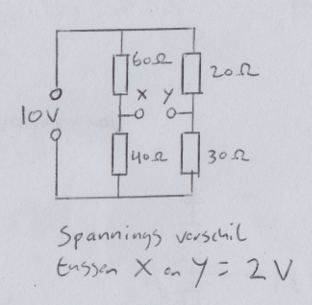 60Ω
20Ω
X Y
10V
40Ω
30Ω
Spannings verschil
tussen X en Y = 2 V